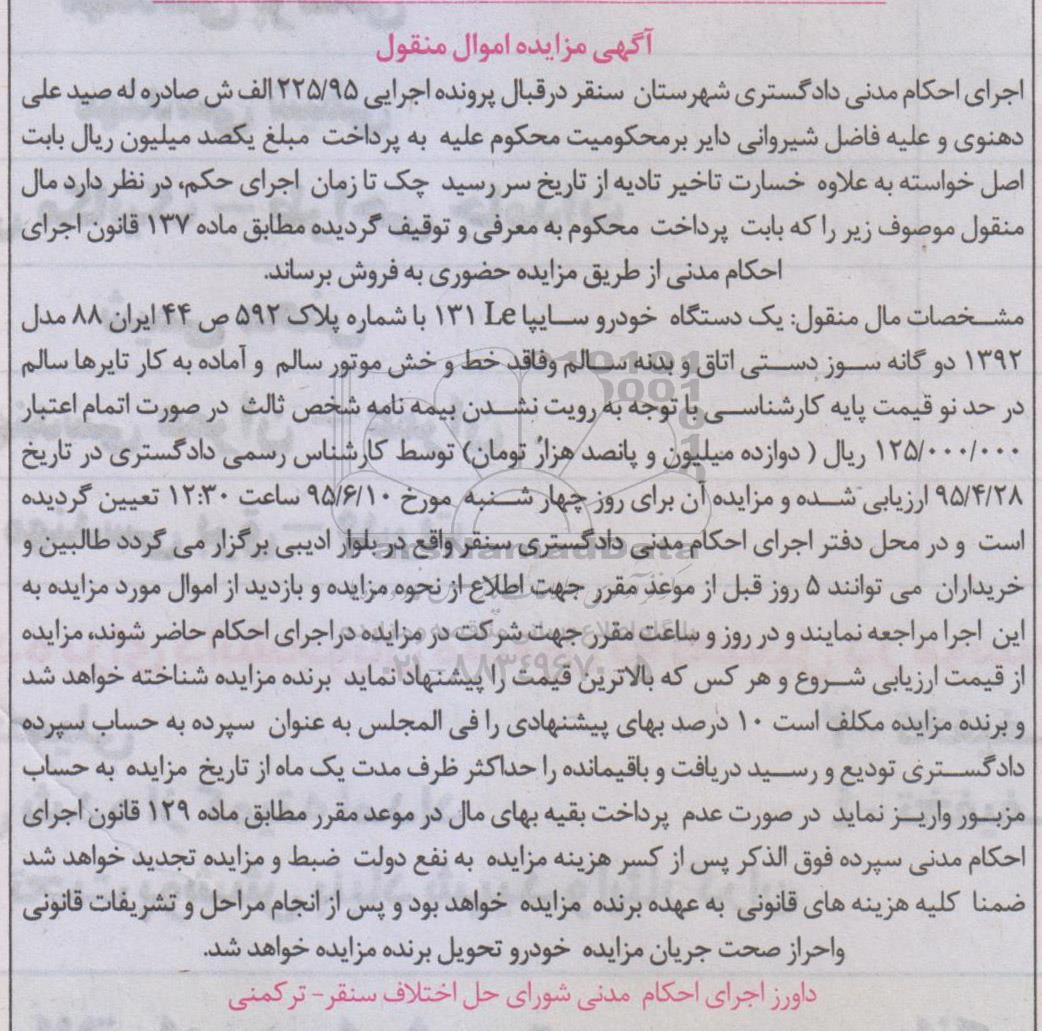 آگهی مزایده اموال منقول
اجرای احکام مدنی دادگستری شهرستان سنقر درقبال پرونده اجرایی ۲۲۵/۹۵ الف ش صادره له صید علی
دهنوی و علیه فاضل شیروانی دایر برمحکومیت محکوم علیه به پرداخت مبلغ یکصد میلیون ریال بابت
اصل خواسته به علاوه خسارت تاخیر تادیه از تاریخ سر رسید چک تا زمان اجرای حکم، در نظر دارد مال
منقول موصوف زیر را که بابت پرداخت محکوم به معرفی و توقیف گردیده مطابق ماده ۱۳۷ قانون اجرای
احکام مدنی از طریق مزایده حضوری به فروش برساند.
مشخصات مال منقول: یک دستگاه خودرو سایپا Le ۱۳۱ با شماره پلاک ۵۹۲ ص ۴۴ ایران ۸۸ مدل
۱۳۹۲ دو گانه سوز دستی اتاق و بدنه سالم وفاقد خط و خش موتور سالم و آماده به کار تایرها سالم
در حد نو قیمت پایه کارشناسی با توجه به رویت نشدن بیمه نامه شخص ثالث در صورت اتمام اعتبار
۱۲۵/۰۰۰/۰۰۰ ریال ( دوازده میلیون و پانصد هزار تومان) توسط کارشناس رسمی دادگستری در تاریخ
۹۵/۴/۲۸ ارزیابی شده و مزایده آن برای روز چهار شنبه مورخ ۹۵/۶/۱۰ ساعت ۱۲:۳۰ تعیین گردیده
است و در محل دفتر اجرای احکام مدنی دادگستری سنقر واقع در بلوار ادیبی برگزار می گردد طالبین و
خریداران می توانند ۵ روز قبل از موعد مقرر جهت اطلاع از نحوه مزایده و بازدید از اموال مورد مزایده به
این اجرا مراجعه نمایند و در روز و ساعت مقرر جهت شرکت در مزایده در اجرای احکام حاضر شوند، مزایده
از قیمت ارزیابی شروع و هر کس که بالاترین قیمت را پیشنهاد نماید برنده مزایده شناخته خواهد شد
و برنده مزایده مکلف است ۱۰ درصد بهای پیشنهادی را فی المجلس به عنوان سپرده به حساب سپرده
دادگستری تودیع و رسید دریافت و باقیمانده را حداکثر ظرف مدت یک ماه از تاریخ مزایده به حساب
مزبور واریز نماید در صورت عدم پرداخت بقیه بهای مال در موعد مقرر مطابق ماده ۱۲۹ قانون اجرای
احکام مدنی سپرده فوق الذکر پس از کسر هزینه مزایده به نفع دولت ضبط و مزایده تجدید خواهد شد
ضمنا کلیه هزینه های قانونی به عهده برنده مزایده خواهد بود و پس از انجام مراحل و تشریفات قانونی
واحراز صحت جریان مزایده خودرو تحویل برنده مزایده خواهد شد.
داورز اجرای احکام مدنی شورای حل اختلاف سنقر- ترکمنی